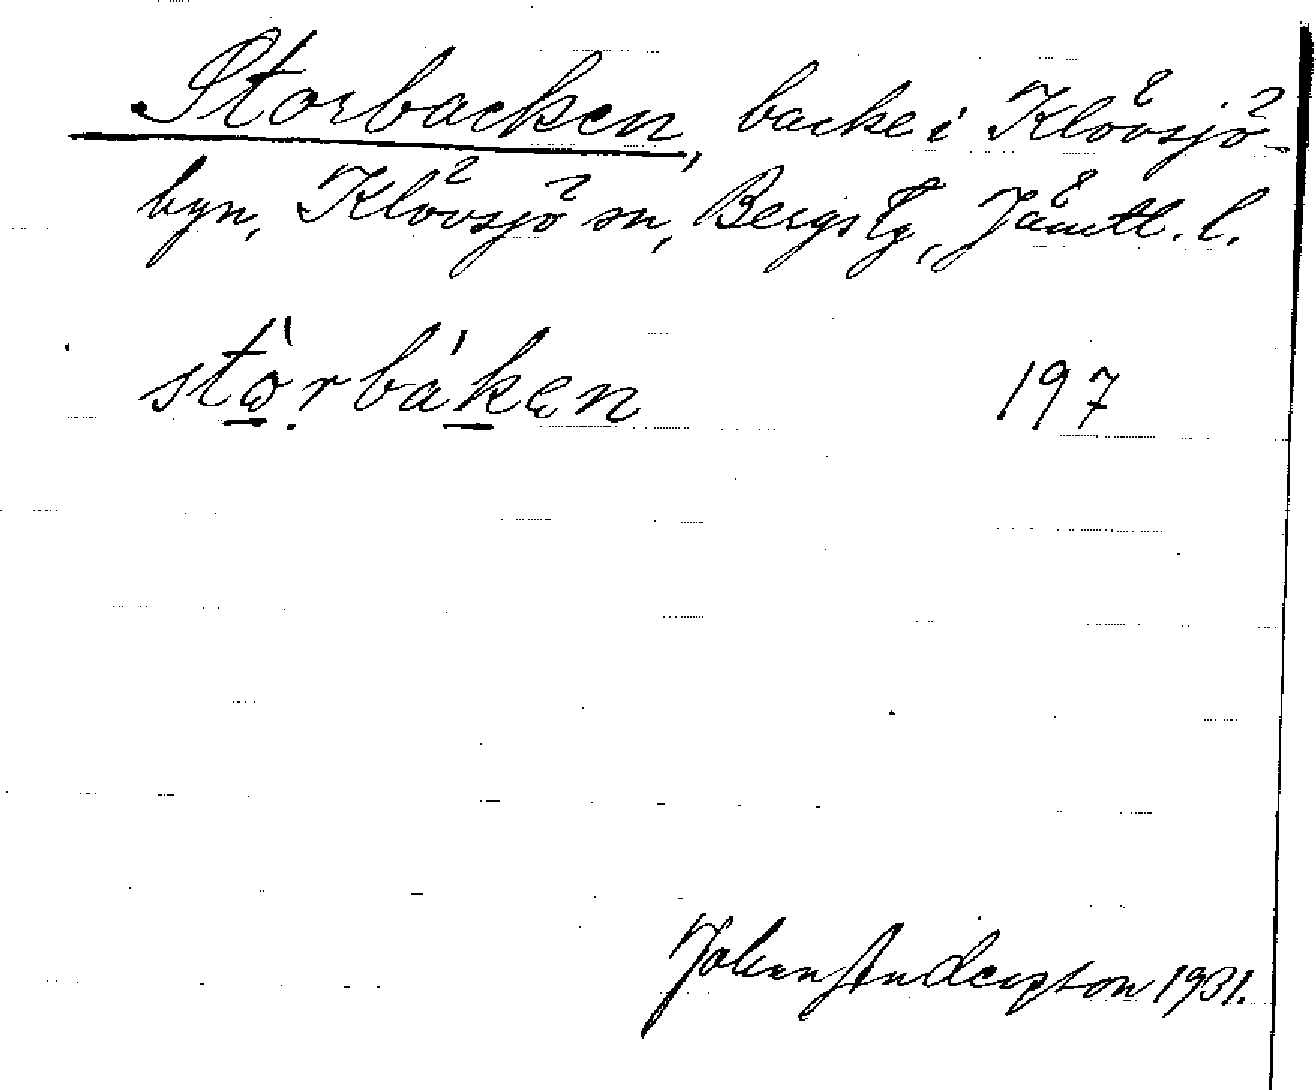 Storbacken, backe i Klövsjö-
byn, Klövsjö sn, Bergs tg, Jämtl. l.
stò̱ṛbá̱ken 197
Johan Anderson 1931.